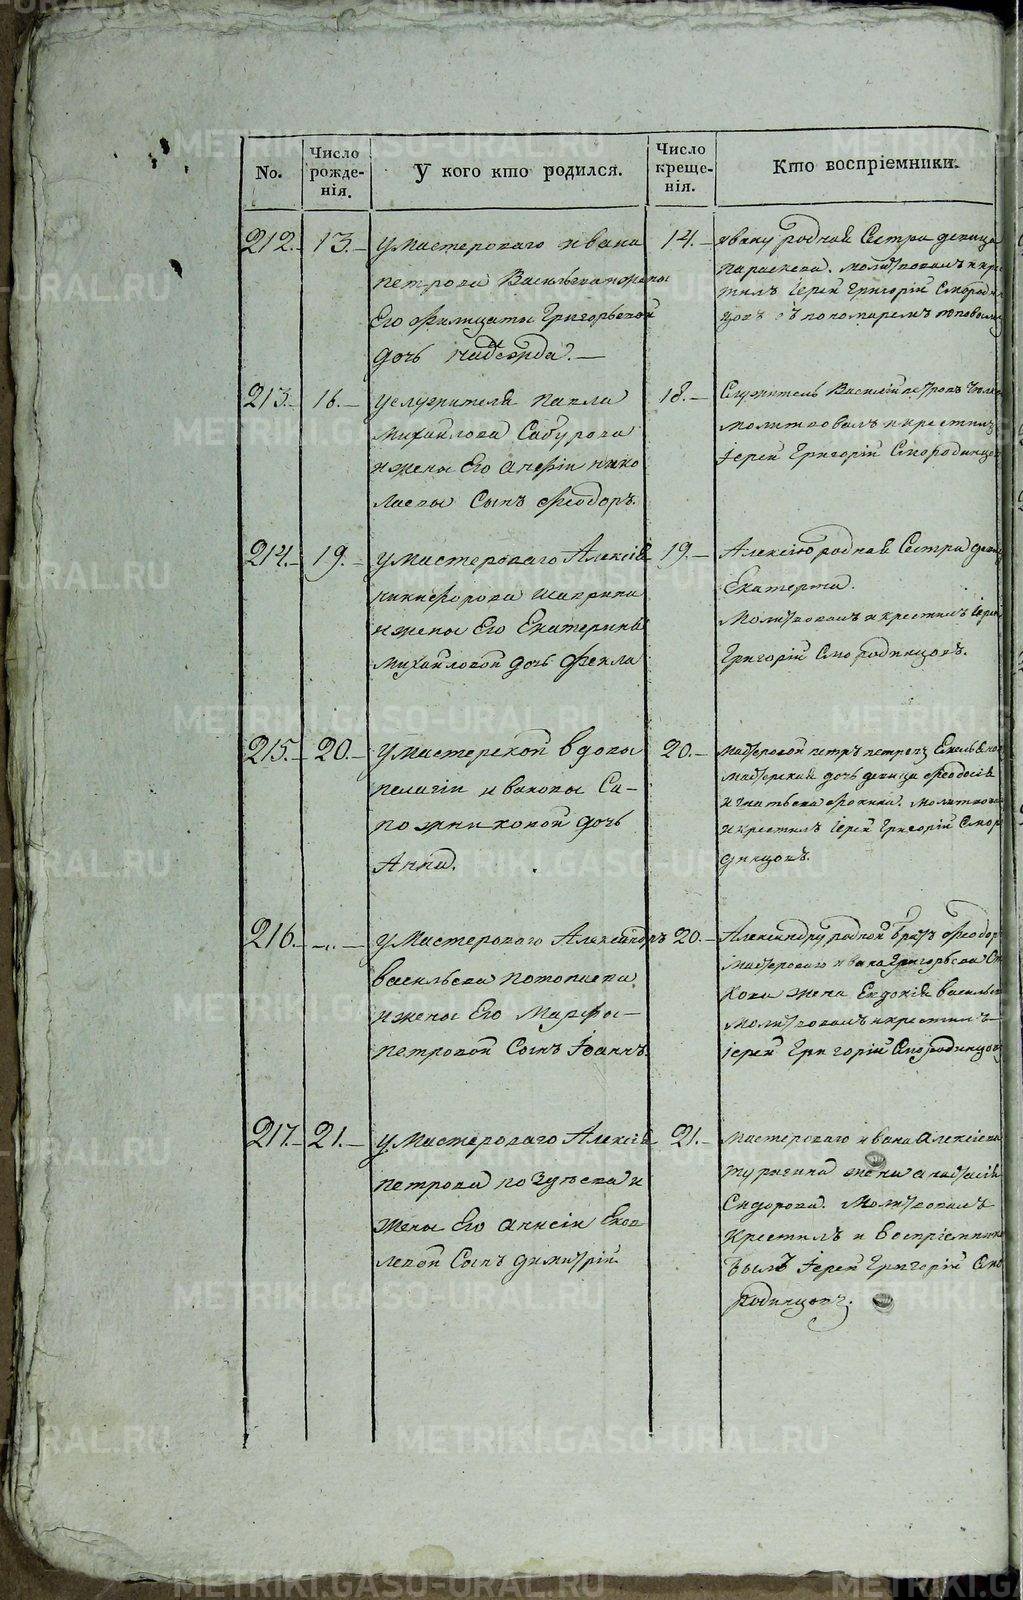 No.
Число рожде-нія.
У кого кто родился.
Число креще-нія.
Кто воспріемники.
212. 13.
у мастероваго ивана
петрова Васильева и жены
Его Филицаты Григорьевой
дочь надежда.
14.
ивану родная Сестра девица
параскева. молитвовалъ и кре
тилъ іерей Григорій Смородин
цовъ съ пономаремъ
213. 16.
у служителя павла
михайлова Сабурова
и жены Его анфіи нико
лаевы Сынъ Феодоръ.
18.
Служитель Василій петровъ
молитвовалъ и крестилъ
іерей Григорій Смородинцов
214. 19.
у мастероваго Алексія
никифорова шаврина
и жены Его Екатерины
михайловой дочь Фекла
19.
Алексію родная Сестра девиц
Екатерина.
молитвовалъ и крестилъ іерей
Григорій Смородинцовъ.
215. 20.
у мастерской вдовы
пелагіи ивановы Са-
пожниковой дочь
Анна.
20.
мастеровой петръ петровъ
мастерская дочь девица феодосія
игнатьева молитвова
и крестилъ іерей Григорій Смор
динцовъ.
216. —„—
у Мастероваго Александръ
васильева потопаева
и жены Его Марфы
петровой Сынъ Іоаннъ.
20.
Александру родной братъ феодор
мастероваго ивана Григорьева
кова жена Евдокія васильев
молитвовалъ и крестилъ
іерей Григорій Смородинцовъ
217. 21.
у Мастероваго Алексія
петрова позуева и
жены Его анисіи Яков
левой Сынъ димитрій
21.
мастероваго ивана алексіева
жена анастасія
Сидорова. молитвовалъ
крестилъ и воспріемник
былъ іерей Григорій Смо
родинцовъ.
METRIKI.GASO-URAL.RU